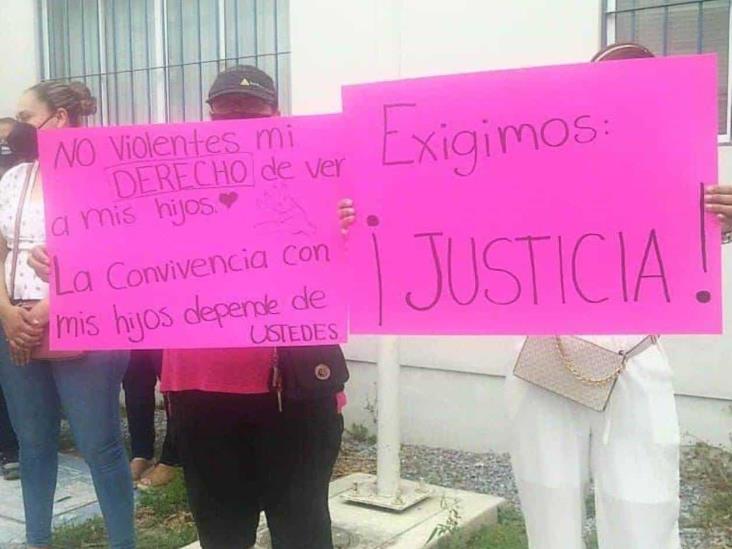 NO Violenten mi
DERECHO de ver
a mis hijos.♥
La Convivencia con
mis hijos depende de
USTEDES
Exigimos:
¡JUSTICIA!